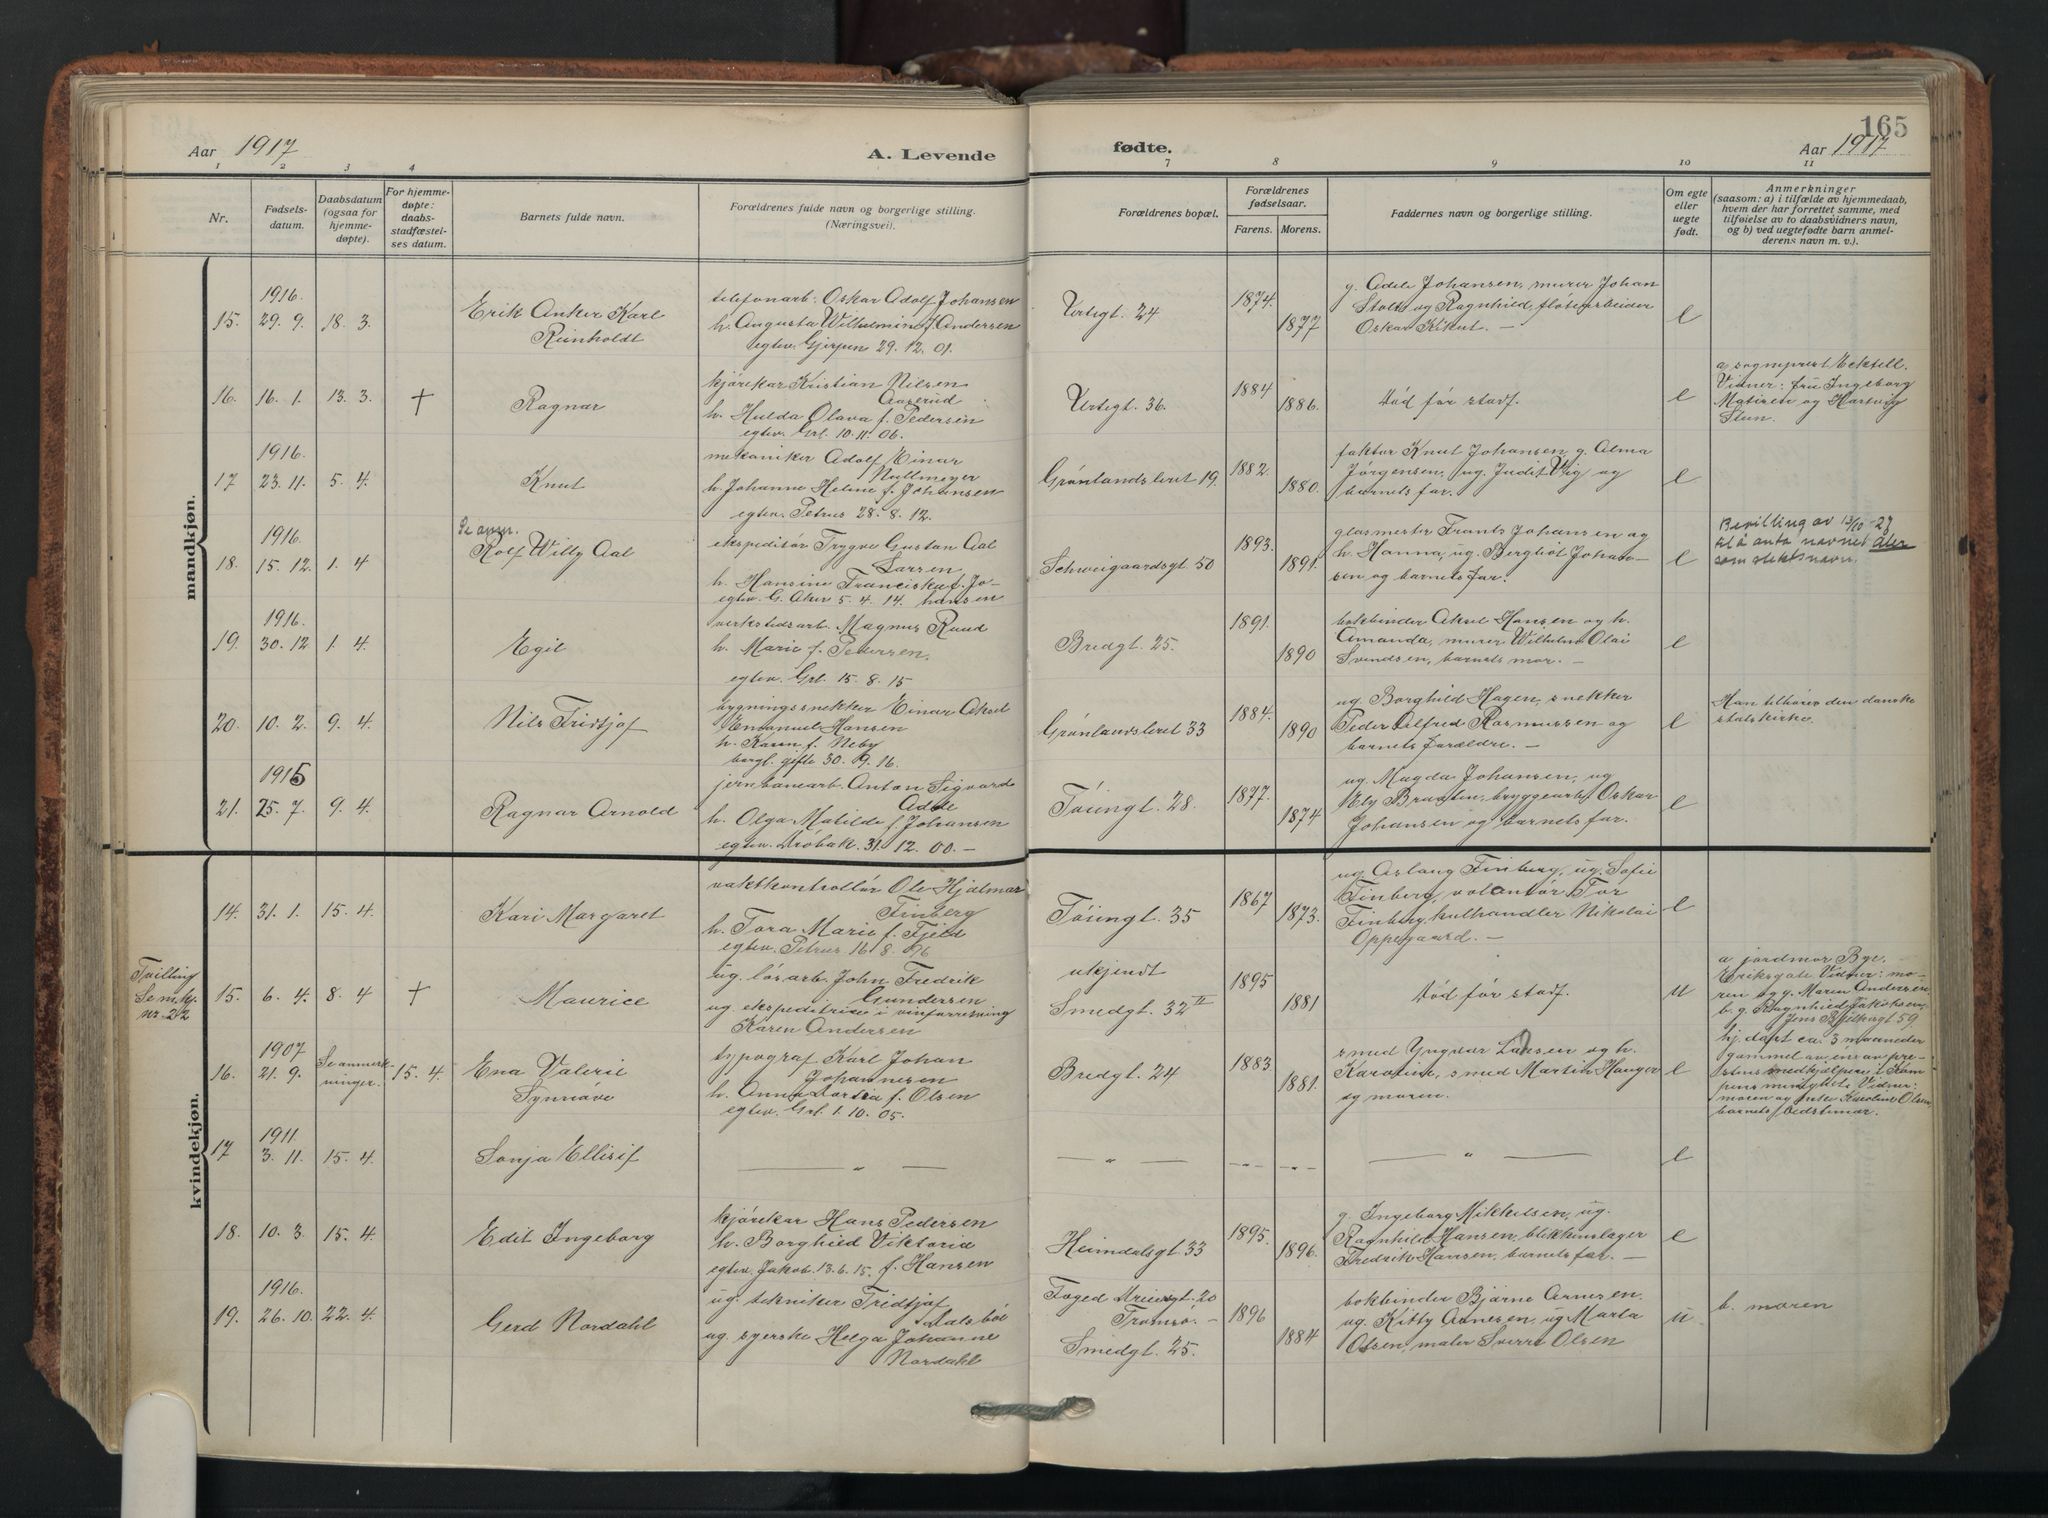 Aar 1917
A. Levende
fødte.
165
Aar 1917
1 2 3 4 7 8 9 10 11
Nr.
Fødsels-
datum.
Daabsdatum
(ogsaa for
hjemme-
døpte).
For hjemme-
døpte:
daabs-
stadfæstel-
ses datum.
Barnets fulde navn.
Forældrenes fulde navn og borgerlige stilling.
(Næringsvei).
Forældrenes bopæl.
Forældrenes
fødselsaar.
Farens. Morens.
Faddernes navn og borgerlige stilling.
Om egte
eller
uegte
født.
Anmerkninger
(saasom: a) i tilfælde av hjemmedaab,
hvem der har forrettet samme, med
tilføielse av to daabsvidners navn,
og b) ved uegtefødte barn anmel-
derens navn m. v.).
mandkjøn.
15. 1916. 29. 9. 18. 3.
Erik Anker Karl
Reinholdt
telefonarb. Oskar Adolf Johansen
h. Augusta Wilhelmine f. Andersen
egtev. Gjerpen 29. 12. 01.
Urtegt. 24
1874. 1877
g. Adele Johansen, murer Johan
Stolt og Ragnhild, fløtearbeider
Oskar Kikut. —
e
16. 16. 1. 13. 3. †
Ragnar
kjørekar Kristian Nilsen
Aaserud
h. Hulda Olava f. Pedersen
egtev. Grl. 10. 11. 06.
Urtegt. 36.
1884 1886.
Død før stadf.
e
a. sogneprest
Vidner: fru Ingeborg
og Hartvig
Steen.
17 1916. 23. 11. 5. 4.
Knut
mekaniker Adolf Einar
Nullmeyer
h. Johanne Helene f. Johansen
egtev. Petrus 28. 8. 12.
Grønlandsleret 19.
1882. 1880.
faktor Knut Johansen, g. Alma
Jørgensen, ug. Judit Vig og
barnets far.
e
18. 1916. 15. 12. 1. 4
Se anm.
Rolf Willy Aal
ekspeditør Trygve Gustav Aal
Larsen
h. Hansine Franciska f. Jo-
egtev. G. Aker 5. 4. 14. hansen
Schweigaardsgt. 50
1893. 1891.
glasmester Frants Johansen og
h. Hanna, ug. Bergliot Johan-
sen og barnets far.
e
Bevilling av 13/10-27
til å anta navnet
som slektsnavn.
19. 1916. 30. 12 1. 4.
Egil
verkstedsarb. Magnus Ruud
h. Marie f. Pedersen.
egtev. Grl. 15. 8. 15
Bredgt. 25.
1891. 1890
bokbinder Aksel Hansen og h.
Amanda, murer Wilhelm Olai
Svendsen, barnets mor. —
e
20. 10. 2. 9. 4.
Nils Fridtjof
bygningssnekker Einar Aksel
Emanuel Hansen
h. Karen f. Neby
borgl. gifte 30. 9. 16.
Grønlandsleret 33
1884. 1890
ug. Borghild Hagen, snekker
Peder Alfred Rasmussen og
barnets forældre. —
e
Han tilhører den danske
statskirke.
21. 1915 25. 7. 9. 4.
Ragnar Arnold
jernbanearb. Anton Sigvard
Adde
h. Olga Matilde f. Johansen
egtev. Drøbak. 31. 12. 00. —
Tøiengt. 28.
1877. 1874
ug. Magda Johansen, ug.
Ely Braaten, bryggearb. Oskar
Johansen og barnets far.
e
kvindekjøn.
14. 31. 1. 15. 4.
Kari Margaret
vaktkontrollør Ole Hjalmar
Finberg
h. Tora Marie f. Fjeld
egtev. Petrus 16. 8. 96
Tøiengt. 35
1867 1873.
ug. Aslaug Finberg, ug. Sofie
Finberg, volontør Tor
Finberg, kulhandler Nikolai
Oppegaard. —
e
Tvilling
Se m.kj.
nr. 22
15. 6. 4. 8. 4 †
Maurice
ug. løsarb. John Fredrik
Gundersen
ug. ekspeditrice i vinforretning
Karen Andersen
ukjendt
Smedgt. 32 II
1895 1881
Død før stadf.
u
a. jordmor Bye.
Eriksgate Vidner: mo-
ren og g. Maren Andersen
b. g. Ragnhild Jakobsen,
Jens Bjelkesgt 59
16. 1907 21. 9. Se anmerk-
ninger. 15. 4.
Ena Valerie
Synnøve
typograf Karl Johan
Johannesen
h. Anna Dortea f. Olsen
egtev. Grl. 1. 10. 05
Bredgt. 24
1883. 1881.
smed Yngvar Larsen og h.
Karoline, smed Martin Hauger
og moren.
e
hj. døpt ca. 3 maaneder
gammel av en av pre-
stens medhjælpere i Kam-
pens menighet. Vidner:
moren og enke Karoline Olsen,
barnets bedstemor.
17 1911. 3. 11. 15. 4.
Sonja Ellisif
— „ —
— „ —
- „ - - „ -
— „ —
e
18. 10. 3. 15. 4.
Edit Ingeborg
kjørekar Hans Pedersen
h. Borghild Viktoria
egtev. Jakob. 13. 6. 15. f. Hansen
Heimdalsgt. 33
1895. 1896.
g. Ingeborg Mikkelsen, ug.
Ragnhild Hansen, blikkenslager
Fredrik Hansen, barnets far. —
e
19. 1916. 26. 10. 22. 4.
Gerd Nordahl
ug. tekniker Fridtjof
Dalsbøe
ug. syerske Helga Johanne
Nordahl
Foged Dreiersgt. 20
Tromsø. —
Smedgt. 25.
1896 1884
bokbinder Bjarne Arnesen.
ug. Kitty Arnesen, ug. Marta
Olsen, maler Sverre Olsen
u
b. moren